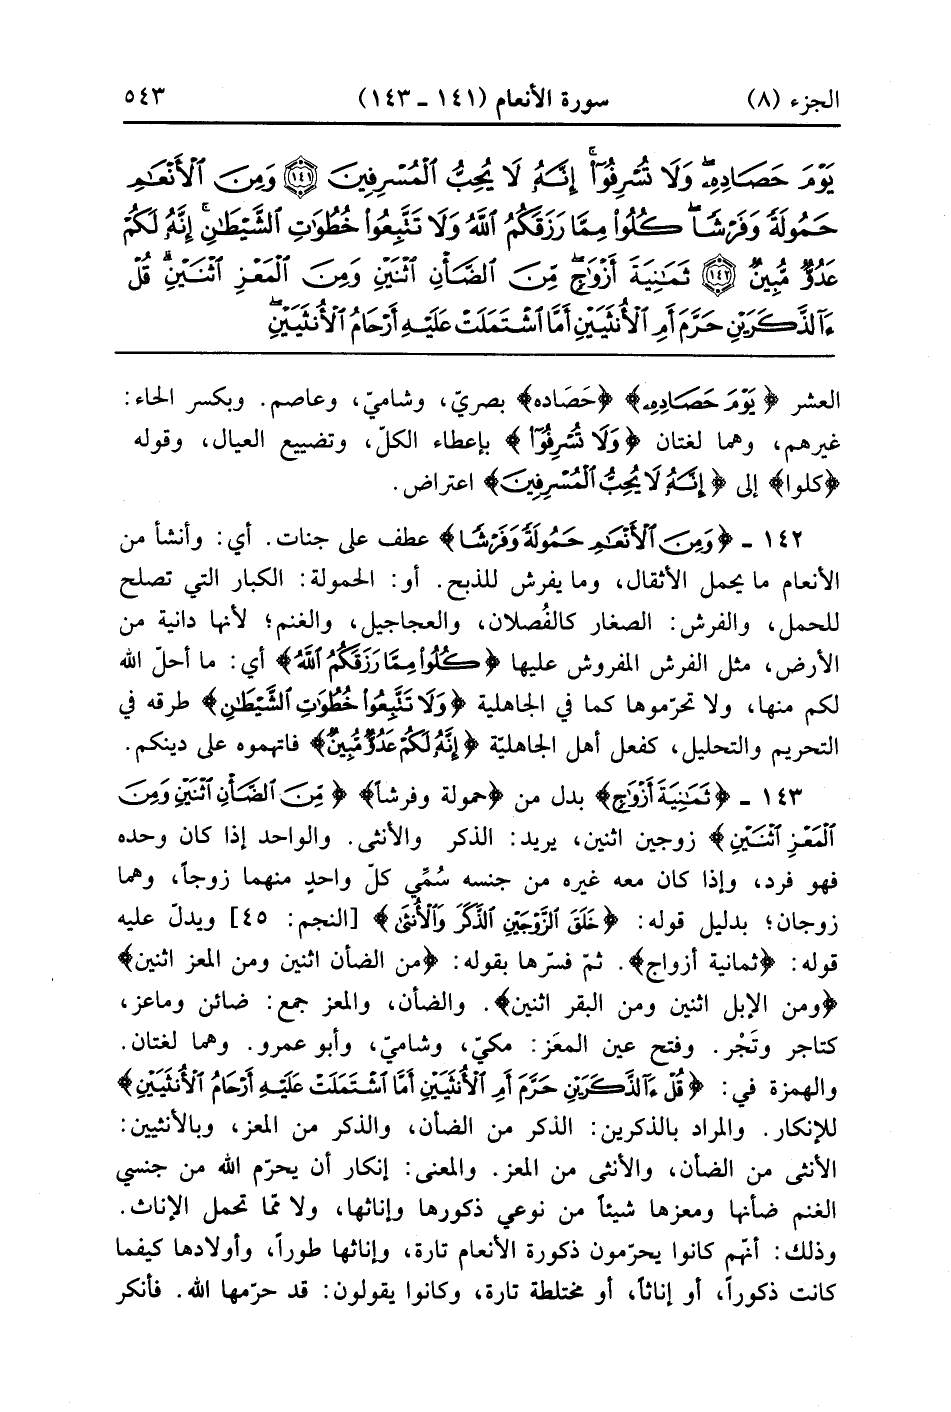 الجزء (٨) سورة الأنعام (١٤١ - ١٤٣) ٥٤٣
يَوْمَ حَصَادِهِۦۖ وَلَا تُسْرِفُوٓا۟ۚ إِنَّهُۥ لَا يُحِبُّ ٱلْمُسْرِفِينَ ﴿١٤١﴾ وَمِنَ ٱلْأَنْعَٰمِ
حَمُولَةً وَفَرْشًاۚ كُلُوا۟ مِمَّا رَزَقَكُمُ ٱللَّهُ وَلَا تَتَّبِعُوا۟ خُطُوَٰتِ ٱلشَّيْطَٰنِۚ إِنَّهُۥ لَكُمْ
عَدُوٌّ مُّبِينٌ ﴿١٤٢﴾ ثَمَٰنِيَةَ أَزْوَٰجٍۖ مِّنَ ٱلضَّأْنِ ٱثْنَيْنِ وَمِنَ ٱلْمَعْزِ ٱثْنَيْنِۗ قُلْ
ءَآلذَّكَرَيْنِ حَرَّمَ أَمِ ٱلْأُنثَيَيْنِ أَمَّا ٱشْتَمَلَتْ عَلَيْهِ أَرْحَامُ ٱلْأُنثَيَيْنِۖ
العشر ﴿يَوْمَ حَصَادِهِۦ﴾ ﴿حَصَاده﴾ بصريّ، وشاميّ، وعاصم. وبكسر الحاء:
غيرهم، وهما لغتان ﴿وَلَا تُسْرِفُوٓا۟﴾ بإعطاء الكلّ، وتضييع العيال، وقوله
﴿كلوا﴾ إلى ﴿إِنَّهُۥ لَا يُحِبُّ ٱلْمُسْرِفِينَ﴾ اعتراض.
١٤٢ - ﴿وَمِنَ ٱلْأَنْعَٰمِ حَمُولَةً وَفَرْشًا﴾ عطف على جنات. أي: وأنشأ من
الأنعام ما يحمل الأثقال، وما يفرش للذبح. أو: الحمولة: الكبار التي تصلح
للحمل، والفرش: الصغار كالفُصلان، والعجاجيل، والغنم؛ لأنها دانية من
الأرض، مثل الفرش المفروش عليها ﴿كُلُوا۟ مِمَّا رَزَقَكُمُ ٱللَّهُ﴾ أي: ما أحلّ الله
لكم منها، ولا تحرّموها كما في الجاهلية ﴿وَلَا تَتَّبِعُوا۟ خُطُوَٰتِ ٱلشَّيْطَٰنِ﴾ طرقه في
التحريم والتحليل، كفعل أهل الجاهليّة ﴿إِنَّهُۥ لَكُمْ عَدُوٌّ مُّبِينٌ﴾ فاتهموه على دينكم.
١٤٣ - ﴿ثَمَٰنِيَةَ أَزْوَٰجٍ﴾ بدل من ﴿حمولة وفرشاً﴾ ﴿مِّنَ ٱلضَّأْنِ ٱثْنَيْنِ وَمِنَ
ٱلْمَعْزِ ٱثْنَيْنِ﴾ زوجين اثنين، يريد: الذكر والأنثى. والواحد إذا كان وحده
فهو فرد، وإذا كان معه غيره من جنسه سُمِّي كلّ واحدٍ منهما زوجاً، وهما
زوجان؛ بدليل قوله: ﴿خَلَقَ ٱلزَّوْجَيْنِ ٱلذَّكَرَ وَٱلْأُنثَىٰ﴾ [النجم: ٤٥] ويدلّ عليه
قوله: ﴿ثمانية أزواج﴾. ثمّ فسّرها بقوله: ﴿من الضأن اثنين ومن المعز اثنين﴾
﴿ومن الإبل اثنين ومن البقر اثنين﴾. والضأن، والمعز جمع: ضائن وماعز،
كتاجر وتَجْر. وفتح عين المعَز: مكيّ، وشاميّ، وأبو عمرو. وهما لغتان.
والهمزة في: ﴿قُلْ ءَآلذَّكَرَيْنِ حَرَّمَ أَمِ ٱلْأُنثَيَيْنِ أَمَّا ٱشْتَمَلَتْ عَلَيْهِ أَرْحَامُ ٱلْأُنثَيَيْنِ﴾
للإنكار. والمراد بالذكرين: الذكر من الضأن، والذكر من المعز، وبالأنثيين:
الأنثى من الضأن، والأنثى من المعز. والمعنى: إنكار أن يحرّم الله من جنسي
الغنم ضأنها ومعزها شيئاً من نوعي ذكورها وإناثها، ولا ممّا تحمل الإناث.
وذلك: أنهّم كانوا يحرّمون ذكورة الأنعام تارة، وإناثها طوراً، وأولادها كيفما
كانت ذكوراً، أو إناثاً، أو مختلطة تارة، وكانوا يقولون: قد حرّمها الله. فأنكر